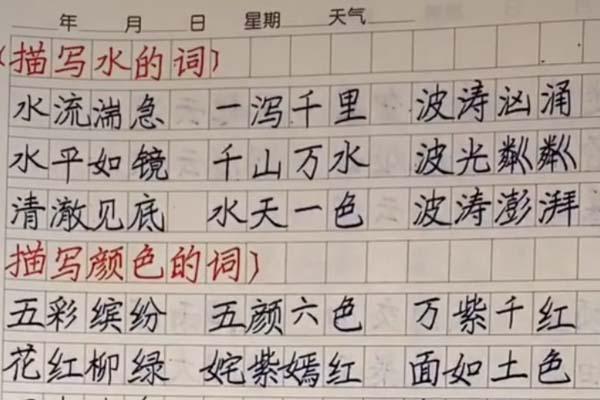 年 月 日 星期 天气
(描写水的词)
水流湍急 一泻千里 波涛汹涌
水平如镜 千山万水 波光粼粼
清澈见底 水天一色 波涛澎湃
描写颜色的词)
五彩缤纷 五颜六色 万紫千红
花红柳绿 姹紫嫣红 面如土色